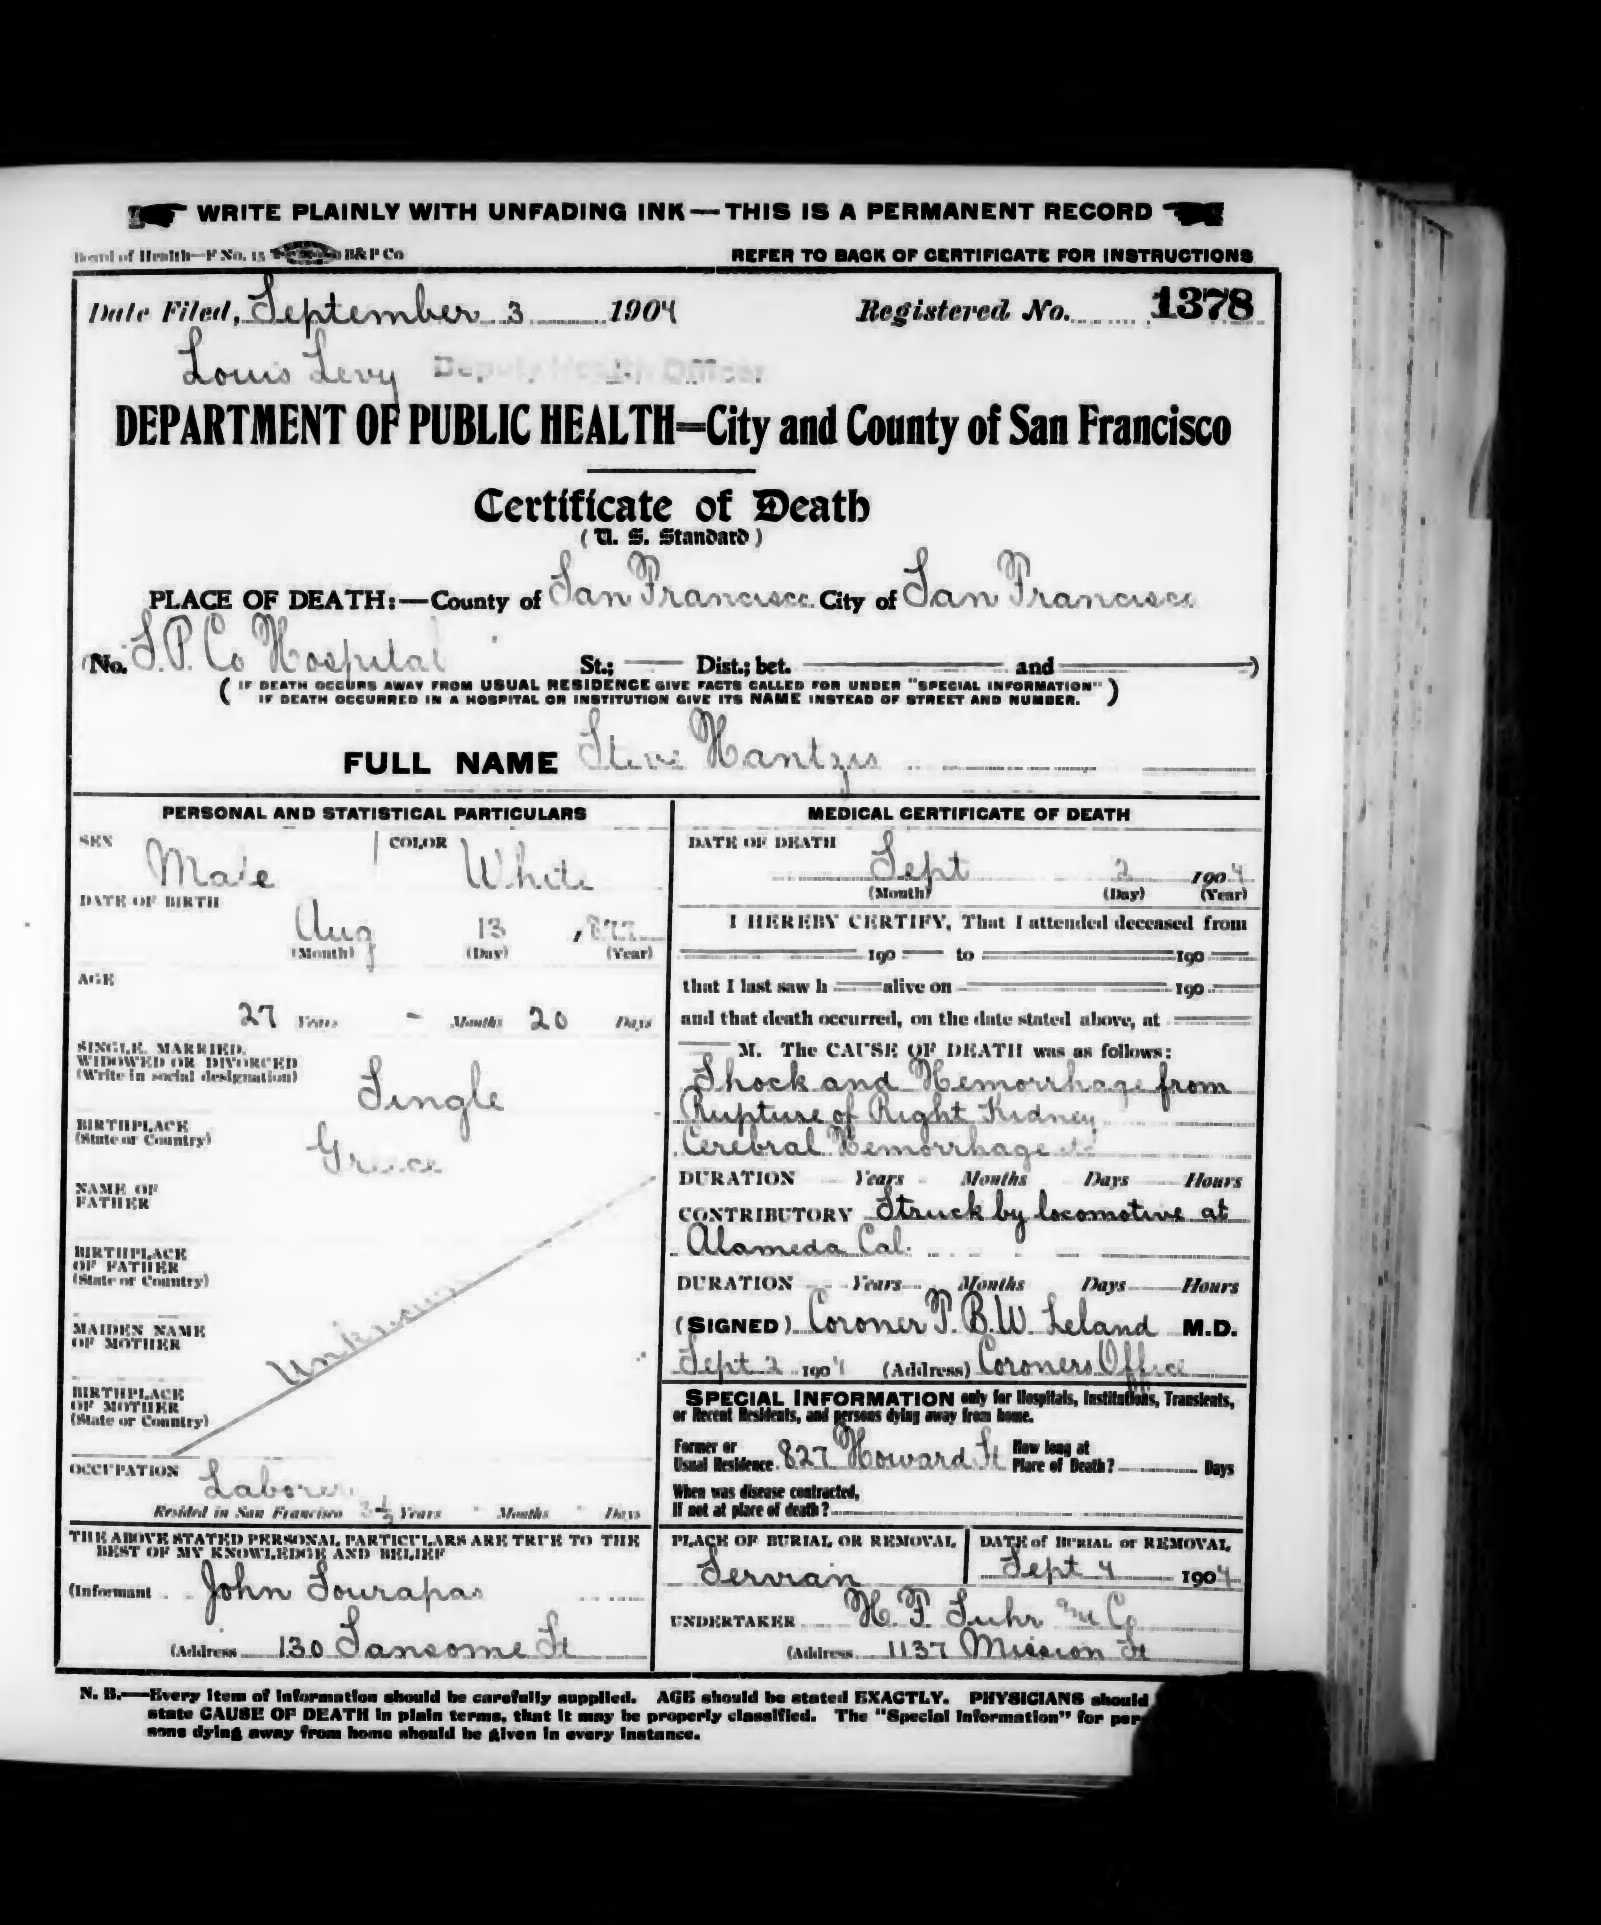 WRITE PLAINLY WITH UNFADING INK—THIS IS A PERMANENT RECORD
Board of Health—F No. 15 B&P Co REFER TO BACK OF CERTIFICATE FOR INSTRUCTIONS
Date Filed, September 3 1904 Registered No. 1378
Louis Levy Deputy Health Officer
DEPARTMENT OF PUBLIC HEALTH=City and County of San Francisco
Certificate of Death
(U. S. Standard)
PLACE OF DEATH:—County of San Francisco City of San Francisco
(No. S. P. Co Hospital St.; Dist.; bet. and )
( IF DEATH OCCURS AWAY FROM USUAL RESIDENCE GIVE FACTS CALLED FOR UNDER "SPECIAL INFORMATION" )
IF DEATH OCCURRED IN A HOSPITAL OR INSTITUTION GIVE ITS NAME INSTEAD OF STREET AND NUMBER.
FULL NAME Steve Hantzis
PERSONAL AND STATISTICAL PARTICULARS
SEX Male COLOR White
DATE OF BIRTH
Aug 13 ,877
(Month) (Day) (Year)
AGE
27 Years - Months 20 Days
SINGLE, MARRIED,
WIDOWED OR DIVORCED
(Write in social designation) Single
BIRTHPLACE
(State or Country) Greece
NAME OF
FATHER
BIRTHPLACE
OF FATHER
(State or Country)
Unknown
MAIDEN NAME
OF MOTHER
BIRTHPLACE
OF MOTHER
(State or Country)
OCCUPATION Laborer
Resided in San Francisco 3 1/2 Years " Months " Days
THE ABOVE STATED PERSONAL PARTICULARS ARE TRUE TO THE
BEST OF MY KNOWLEDGE AND BELIEF
(Informant John Sourapas
(Address 130 Sansome St
MEDICAL CERTIFICATE OF DEATH
DATE OF DEATH
Sept 2 1904
(Month) (Day) (Year)
I HEREBY CERTIFY, That I attended deceased from
190 to 190
that I last saw h alive on 190
and that death occurred, on the date stated above, at
M. The CAUSE OF DEATH was as follows:
Shock and Hemorrhage from
Rupture of Right Kidney
Cerebral Hemorrhage
DURATION Years Months Days Hours
CONTRIBUTORY Struck by locomotive at
Alameda Cal.
DURATION Years Months Days Hours
(SIGNED) Coroner T. B. W. Leland M.D.
Sept 2 1904 (Address) Coroners Office
SPECIAL INFORMATION only for Hospitals, Institutions, Transients,
or Recent Residents, and persons dying away from home.
Former or
Usual Residence 827 Howard St How long at
Place of Death? Days
When was disease contracted,
If not at place of death?
PLACE OF BURIAL OR REMOVAL
Servian
DATE of BURIAL or REMOVAL
Sept 4 1904
UNDERTAKER H. F. Suhr and Co
(Address 1137 Mission St
N. B.—Every item of information should be carefully supplied. AGE should be stated EXACTLY. PHYSICIANS should
state CAUSE OF DEATH in plain terms, that it may be properly classified. The "Special Information" for per-
sons dying away from home should be given in every instance.